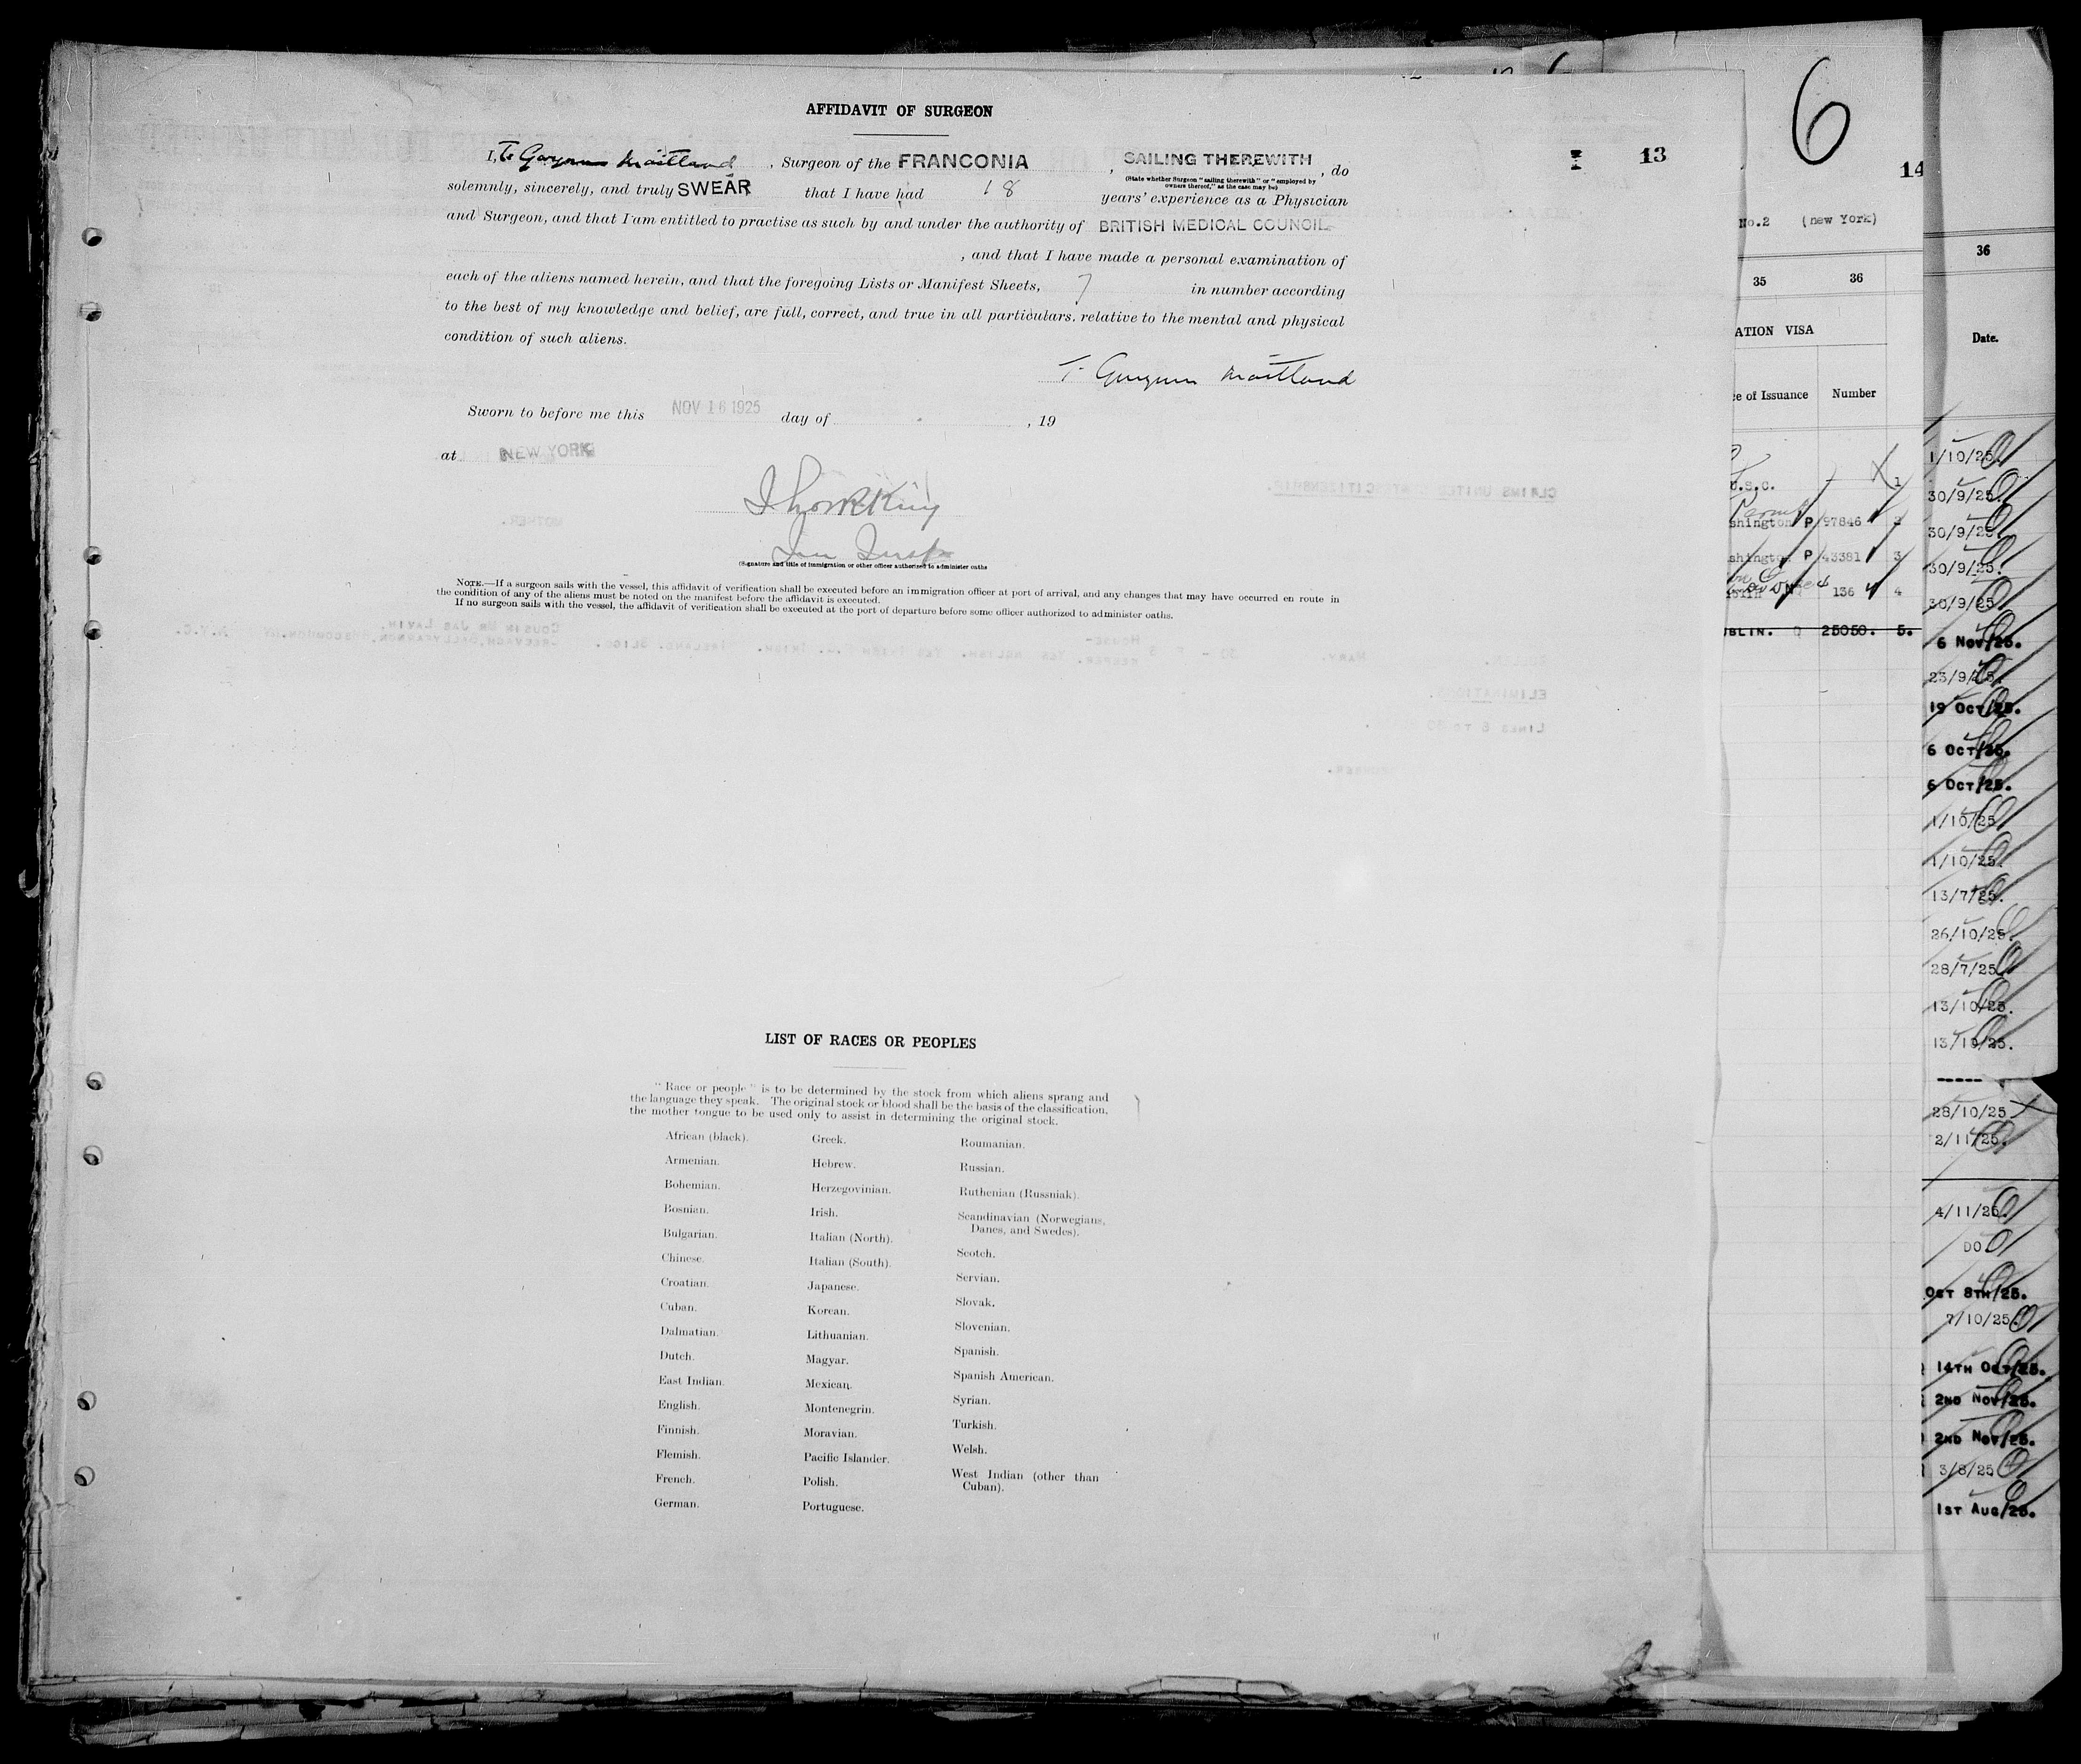 AFFIDAVIT OF SURGEON
I, T. Maitland, Surgeon of the FRANCONIA, SAILING THEREWITH, do
(State whether Surgeon "sailing therewith" or "employed by
owners thereof," as the case may be)
solemnly, sincerely, and truly SWEAR that I have had 18 years' experience as a Physician
and Surgeon, and that I am entitled to practise as such by and under the authority of BRITISH MEDICAL COUNCIL
, and that I have made a personal examination of
each of the aliens named herein, and that the foregoing Lists or Manifest Sheets, 7 in number according
to the best of my knowledge and belief, are full, correct, and true in all particulars, relative to the mental and physical
condition of such aliens.
T. Maitland
Sworn to before me this NOV 16 1925 day of , 19
at NEW YORK
King
(Signature and title of immigration or other officer authorized to administer oaths
NOTE.—If a surgeon sails with the vessel, this affidavit of verification shall be executed before an immigration officer at port of arrival, and any changes that may have occurred en route in
the condition of any of the aliens must be noted on the manifest before the affidavit is executed.
If no surgeon sails with the vessel, the affidavit of verification shall be executed at the port of departure before some officer authorized to administer oaths.
LIST OF RACES OR PEOPLES
"Race or people" is to be determined by the stock from which aliens sprang and
the language they speak. The original stock or blood shall be the basis of the classification,
the mother tongue to be used only to assist in determining the original stock.
African (black).
Armenian.
Bohemian.
Bosnian.
Bulgarian.
Chinese.
Croatian.
Cuban.
Dalmatian.
Dutch.
East Indian.
English.
Finnish.
Flemish.
French.
German.
Greek.
Hebrew.
Herzegovinian.
Irish.
Italian (North).
Italian (South).
Japanese.
Korean.
Lithuanian.
Magyar.
Mexican.
Montenegrin.
Moravian.
Pacific Islander.
Polish.
Portuguese.
Roumanian.
Russian.
Ruthenian (Russniak).
Scandinavian (Norwegians,
Danes, and Swedes).
Scotch.
Servian.
Slovak.
Slovenian.
Spanish.
Spanish American.
Syrian.
Turkish.
Welsh.
West Indian (other than
Cuban).
13
6
14
No.2 (new York)
35 36
ATION VISA
ce of Issuance Number
U.S.C. 1
shington P 97846 2
shington P 43381 3
136 4
UBLIN. Q 25050. 5.
36
Date.
1/10/25.
30/9/25.
30/9/25.
30/9/25.
30/9/25.
6 Nov/25.
23/9/25.
19 Oct/25.
6 Oct/25.
6 Oct/25.
1/10/25.
1/10/25.
13/7/25.
26/10/25.
28/7/25.
13/10/25.
13/10/25.
-----
28/10/25.
2/11/25.
4/11/25.
DO.
OCT 8TH/25.
7/10/25.
14TH OCT/25.
2ND NOV/25.
2ND NOV/25.
3/8/25.
1ST AUG/25.